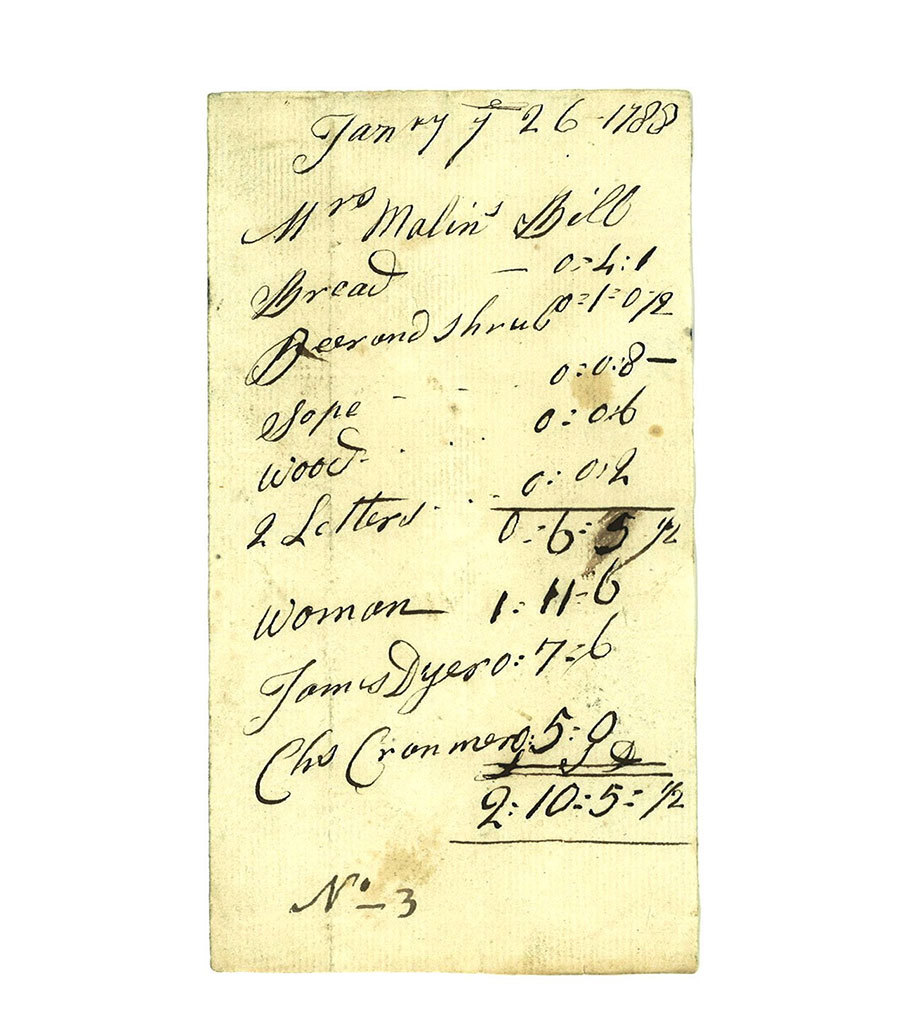 Janry ye 26 1788
Mrs Malin's Bill
Bread — 0=4:1
Beer and Shrub 0=1=0 1/2
Sope - - . 0:0:8 —
Wood . . . . 0:0:6
2 Letters . . . 0:0:2
0:6=5 1/2
Woman 1:11=6
James Dyer 0:7=6
Chs Cranmer 0:5:0
2:10=5= 1/2
No 3